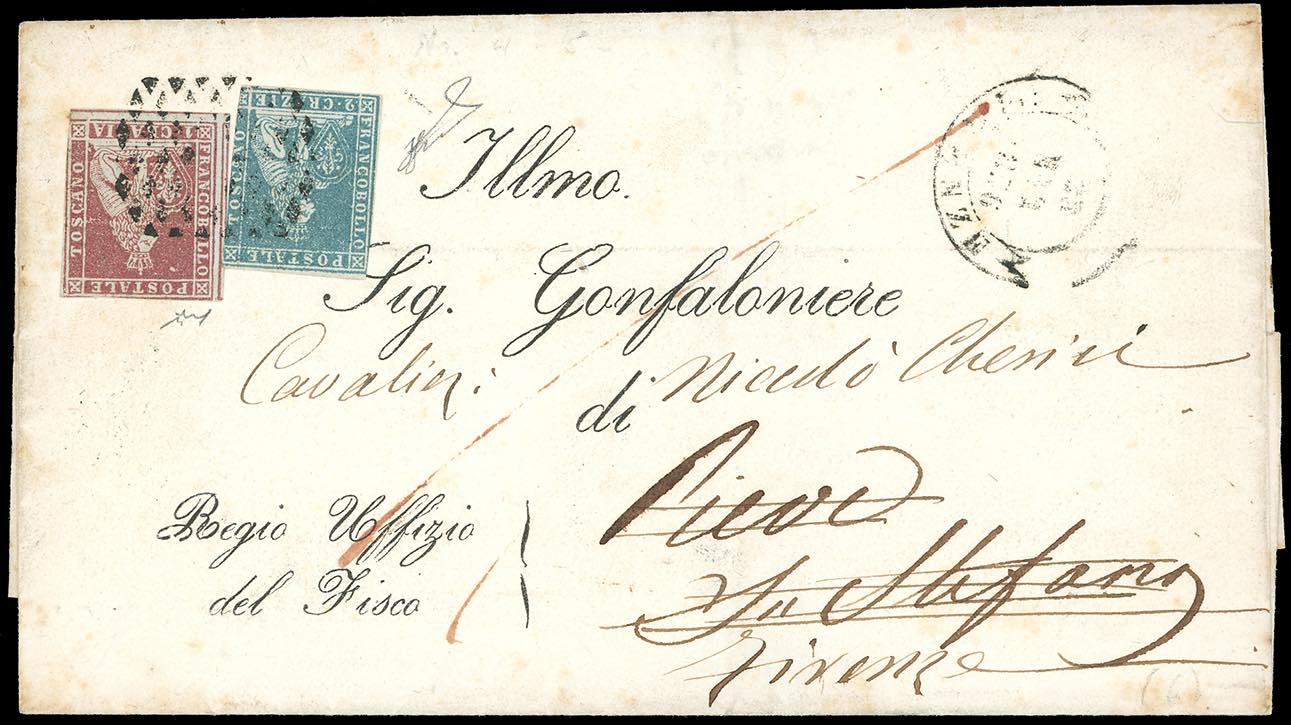 FRANCOBOLLO
POSTALE
TOSCANO
1 CRAZIA
FRANCOBOLLO
POSTALE
TOSCANO
2 CRAZIE
Illmo.
Sig. Gonfaloniere
Niccolò
di
Pieve
Sn Stefano
Firenze
Regio Uffizio
del Fisco